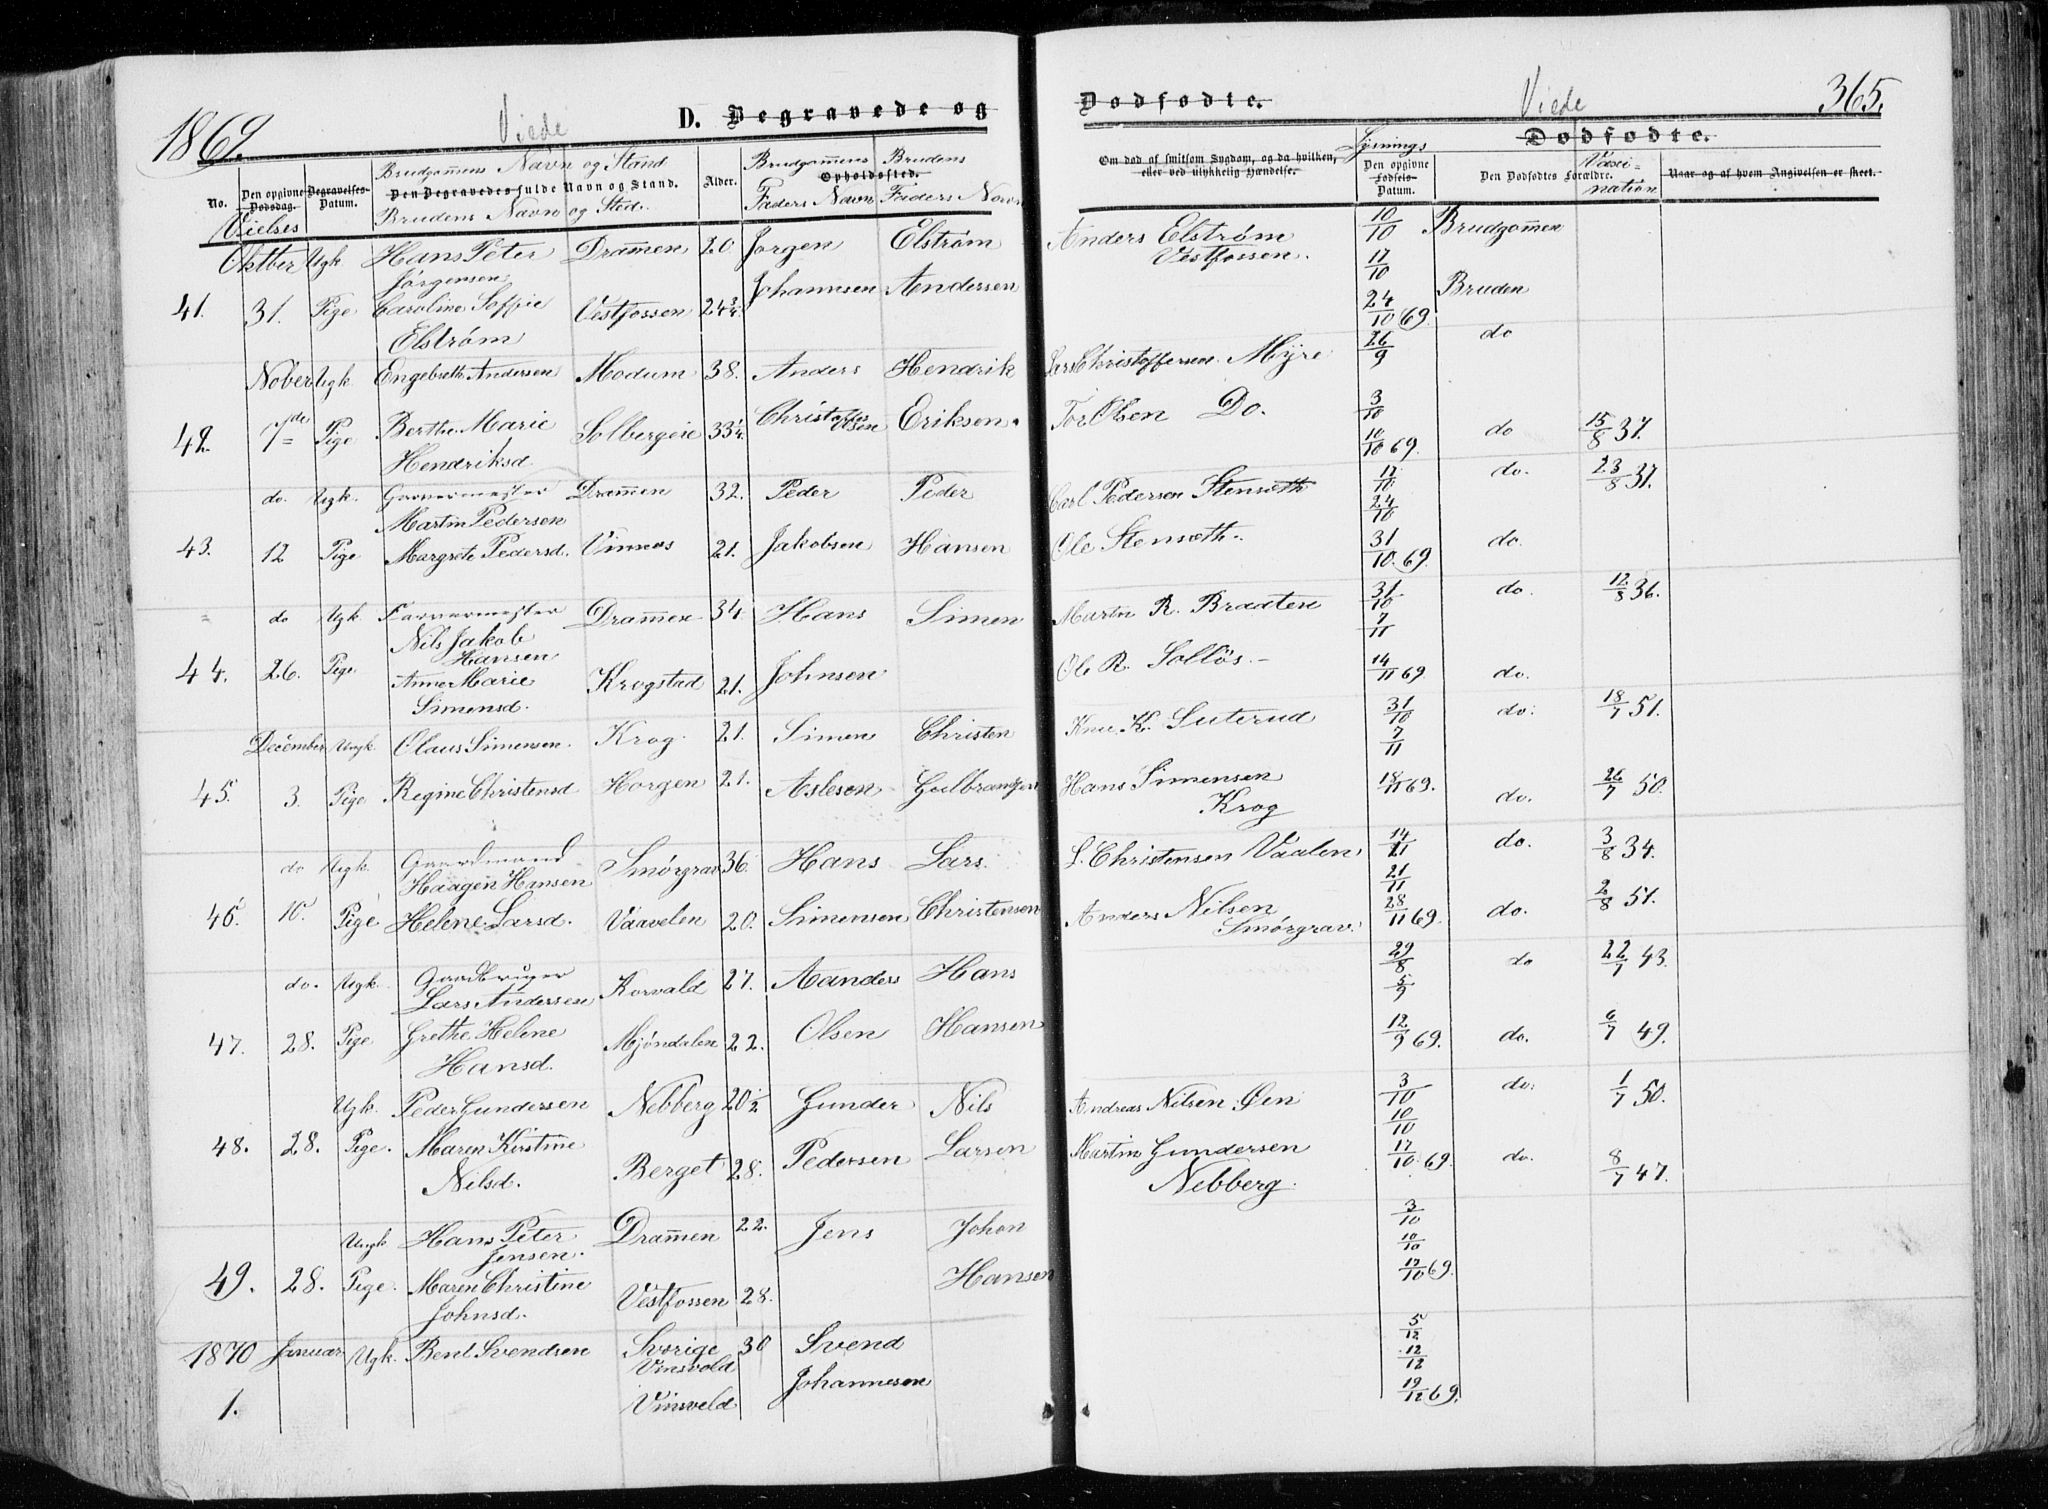 1869. Viede D. Begravede og Dødfødte. Viede 365.
Dødfødte.
No. Den opgivne Dødsdag. Vielses Begravelses-Datum. Brudgommens Navn og Stand Den Begravedes fulde Navn og Stand. Brudens Navn og Sted. Alder. Opholdssted. Brudgommens Faders Navn Brudens Faders Navn
Om død af smitsom Sygdom, og da hvilken, eller ved ulykkelig Hændelse. Lysnings Den opgivne Fødsels-Datum. Den Dødfødtes Forældre. Vaxination Naar og af hvem Angivelsen er skeet.
Oktber Ugk. Hans Peter Jörgensen Dramen 20 Jorgen Elström Anders Elström Vestfossen. 10/10 17/10 Brudgommen
41. 31. Pige Caroline Soffie Elström Vestfossen 24 3/4. Johannsen Andersen 24/10 69. Bruden
Nober Ugk. Engebreth Andersen Modum 38. Anders Hendrik Christoffersen Myre 26/9 do
42. 7de Pige Berthe Marie Hendriksd. Solbergeie 33 1/4. Christoffersen Eriksen. Tor Olsen Do. 3/10 10/10 69. do 15/8 37.
do. Ugk. Garvermester Martin Pedersen Dramen 32. Peder Peder Carl Pedersen Stensæth 17/10 24/10 do. 23/8 37.
43. 12 Pige Margrete Pedersd. Vinnæs 21. Jakobsen Hansen Ole Stensæth. 31/10. 69. do.
do Ugk Farvermester Nils Jakob Hansen Dramen 34 Hans Simen Martin R. Braaten 31/10 7/11 do. 12/8 36.
44. 26. Pige Anne Marie Simensd. Krogstad 21. Johnsen Ole R. Solløs. 14/11 69 do.
December Ungk. Olaus Simensen. Krog. 21. Simen Christen K. Luterud 31/10 7/11 do. 18/7 51.
45. 3. Pige Regine Christensd Horgen 21. Aslesen Gulbrandsen Hans Simensen Krog 18/11 69. do. 26/7 50.
do Ugk. Gaardmand Haagen Hansen Smörgrav 36. Hans Lars. L. Christensen Vaalen 14/11 21/11 do. 3/8 34.
46. 10. Pige Helene Larsd. Vaavelen 20. Simensen Christensen Anders Nilsen Smørgrav. 28/11 69. do. 2/8 51.
do. Ugk. Gaardbruger Lars Andersen Korvald 27. Aanders Hans 29/8 5/9 do 22/7 43.
47. 28. Pige Grethe Helene Hansd. Mjöndalen 22. Olsen Hansen 12/9 69. do. 6/7 49.
Ugk. Peder Gundersen Nebberg 20 1/2 Gunder Nils Andreas Nilsen Øen 3/10 10/10 do. 1/7 50.
48. 28. Pige. Maren Kirstine Nilsd. Berget 28. Pedersen Larsen Martin Gundersen Nebberg. 17/10 69. do. 8/7 47.
Ungk Hans Peter Jensen. Dramen 22. Jens Johan 3/10 10/10
49. 28. Pige. Maren Christine Johnsd. Vestfossen 28. Hansen 17/10 69.
1870 Januar Ugk. Bent Svendsen Sverige Vinsvold 30 Svend 5/12 12/12
1. Vinsveld Johannesen 19/12 69.